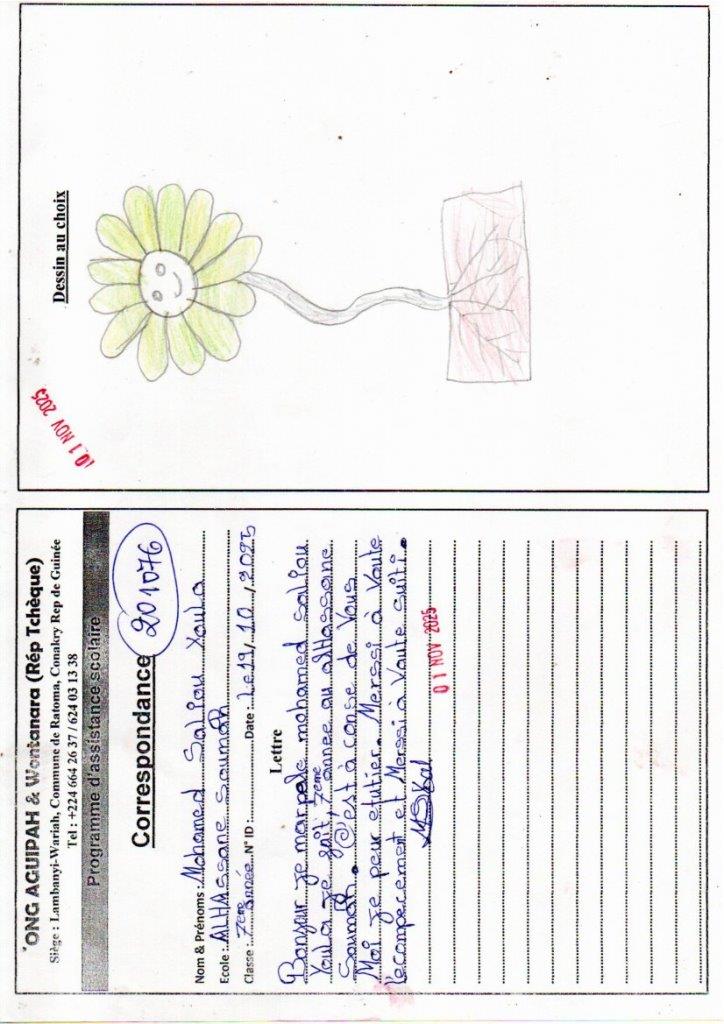 ONG AGUIPAH & Wontanara (Rép Tchèque)
Siège : Lambanyi-Wariah, Commune de Ratoma, Conakry Rep de Guinée
Tel : +224 664 26 37 / 624 03 13 38
Programme d'assistance scolaire
Correspondance 201076
Nom & Prénoms : Mohamed Saliou Youla
Ecole : ALHASSane Soumah
Classe : 7ème Année N° ID : Date : Le 19 / 10 / 2025
Lettre
Bonsour je marpele mohamed saliou
Youla je fait, 7ème année au alHassane
Soumah. C'est à conse de Vous
Moi je peur etutier. Merssi à Voute
l'écompecement et Merssi à Voute suiti.
01 NOV 2025
Dessin au choix
01 NOV 2025